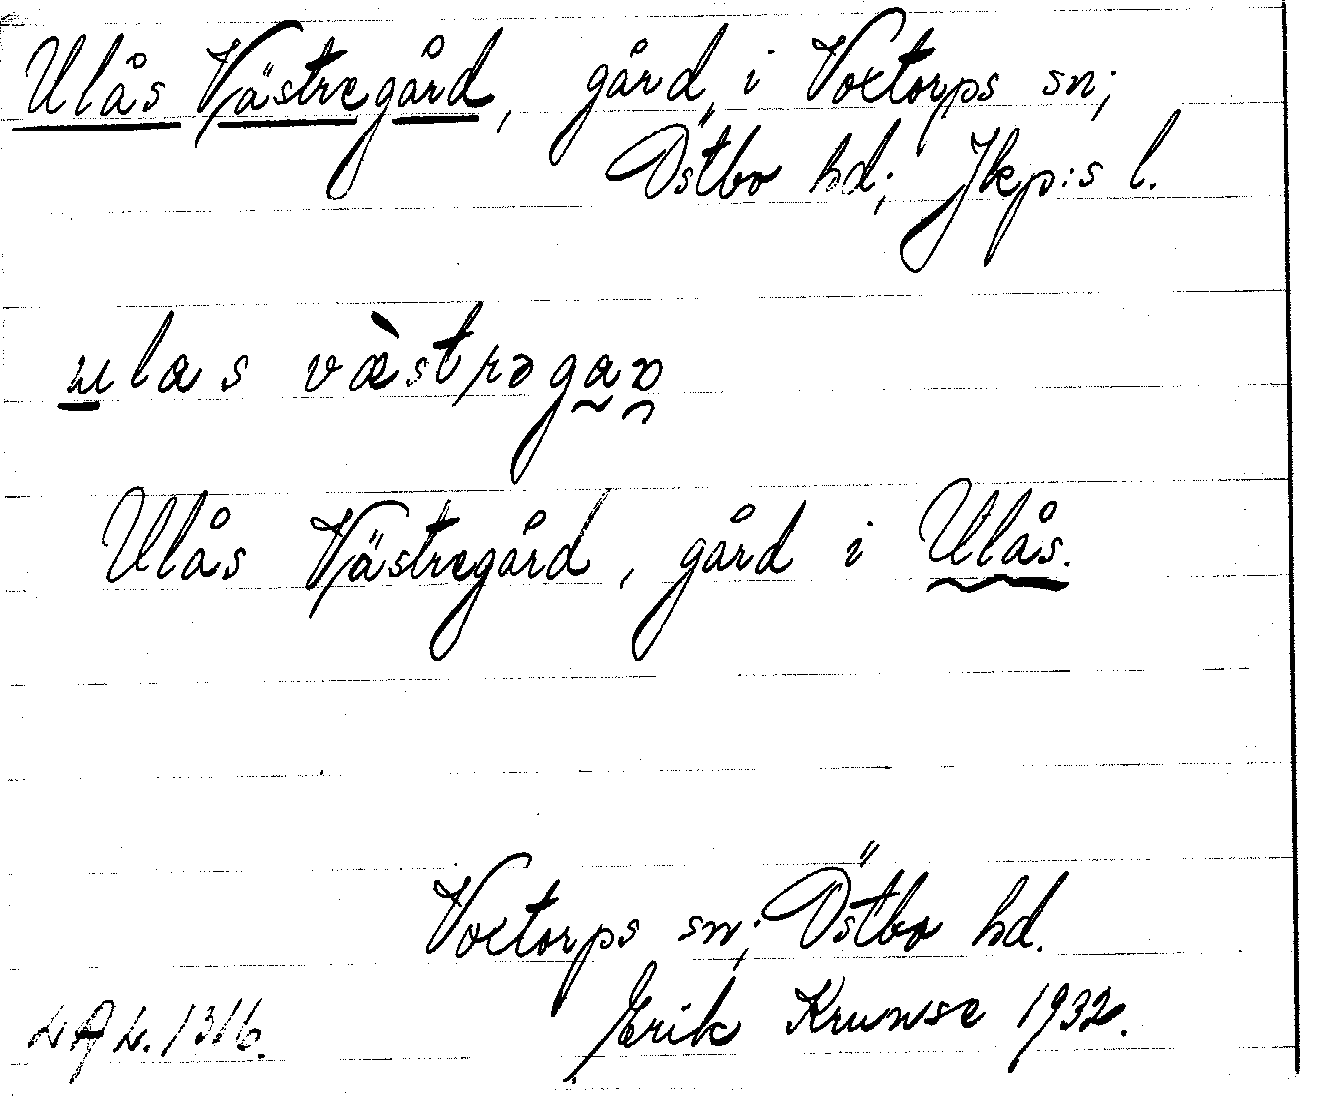 Ulås Västregård, gård i Voxtorps sn;
Östbo hd; Jkp:s l.
ulas væ̀strəgaꝛ
Ulås Västregård, gård i Ulås.
Voxtorps sn; Östbo hd.
Erik Krunse 1932.
LAL. 1316.